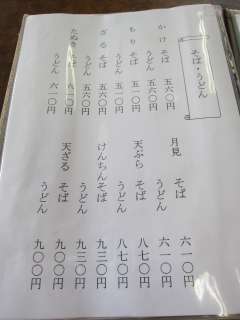 そば・うどん
かけ そば 五六〇円
うどん 五六〇円
もり そば 五一〇円
うどん 五一〇円
ざる そば 五六〇円
うどん 五六〇円
たぬき そば 六一〇円
うどん 六一〇円
月見 そば 六一〇円
うどん 六一〇円
天ぷら そば 八七〇円
うどん 八七〇円
けんちん そば 九三〇円
うどん 九三〇円
天ざる そば 九〇〇円
うどん 九〇〇円